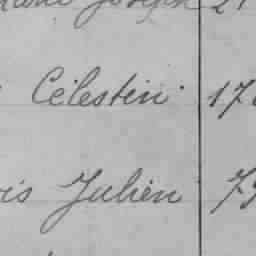 Joseph 21
Célestin 17
is Julien 79